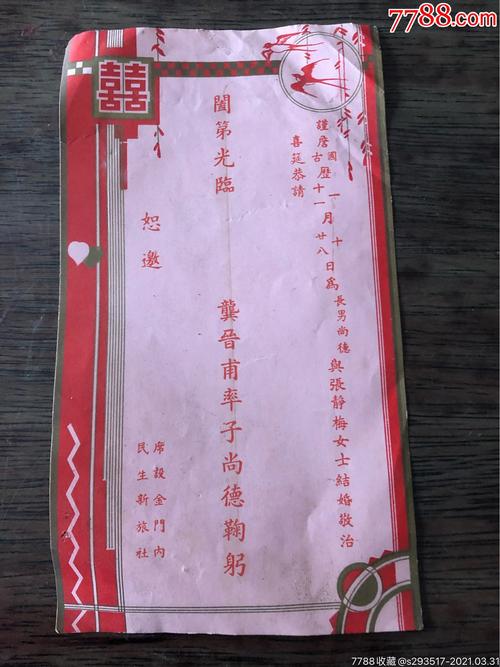 7788.com
囍
謹詹國曆一月十日為長男尚德與張靜梅女士結婚敬治
古曆十一月廿八
喜筵恭請
闔第光臨
恕邀
龔晉甫率子尚德鞠躬
席設金門內
民生新旅社
7788收藏@s293517-2021.03.31